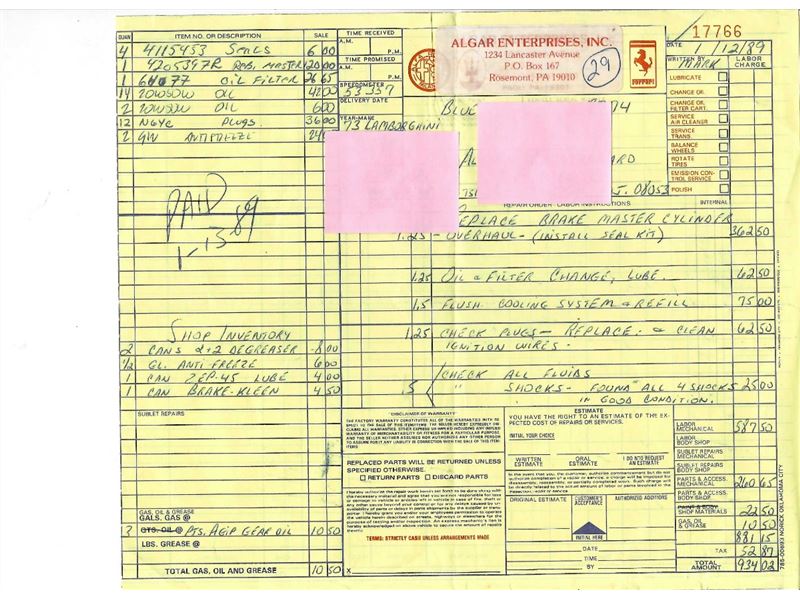 17766
QUAN ITEM NO. OR DESCRIPTION SALE
4 4115453 SEALS 6 00
1 4205397R REB. MASTER 120 00
1 60077 OIL FILTER 26 65
14 20W50W OIL 42 00
2 OIL 6 00
12 NGYC PLUGS 36 00
2 GW ANTIFREEZE 24
PAID
1-15 89
SHOP INVENTORY
2 CANS 2+2 DEGREASER 8 00
1/2 GL. ANTI FREEZE 6 00
1 CAN ZEP-45 LUBE 4 00
1 CAN BRAKE-KLEEN 4 50
SUBLET REPAIRS
GAS, OIL & GREASE
GALS. GAS @
3 QTS. OIL @ PTS. AGIP GEAR OIL 10 50
LBS. GREASE @
TOTAL GAS, OIL AND GREASE 10 50
TIME RECEIVED
A.M. P.M.
TIME PROMISED
A.M. P.M.
SPEEDOMETER
53357
DELIVERY DATE
YEAR-MAKE
73 LAMBORGHINI
ALGAR ENTERPRISES, INC.
1234 Lancaster Avenue
P.O. Box 167
Rosemont, PA 19010
29
Ferrari
BLUE
08053
DATE 1/12/89
WRITTEN BY MARK
LABOR CHARGE
LUBRICATE
CHANGE OIL
CHANGE OIL FILTER CART.
SERVICE AIR CLEANER
SERVICE TRANS.
BALANCE WHEELS
ROTATE TIRES
EMISSION CONTROL SERVICE
POLISH
REPAIR ORDER - LABOR INSTRUCTIONS INTERNAL
REPLACE BRAKE MASTER CYLINDER
1.25 - OVERHAUL - (INSTALL SEAL KIT) 362 50
1.25 OIL & FILTER CHANGE, LUBE. 62 50
1.5 FLUSH COOLING SYSTEM & REFILL 75 00
1.25 CHECK PLUGS - REPLACE. & CLEAN 62 50
IGNITION WIRES.
CHECK ALL FLUIDS
.5 " SHOCKS - FOUND ALL 4 SHOCKS 25 00
IN GOOD CONDITION.
DISCLAIMER OF WARRANTY
REPLACED PARTS WILL BE RETURNED UNLESS
SPECIFIED OTHERWISE.
RETURN PARTS DISCARD PARTS
TERMS: STRICTLY CASH UNLESS ARRANGEMENTS MADE
X
ESTIMATE
YOU HAVE THE RIGHT TO AN ESTIMATE OF THE EXPECTED COST OF REPAIRS OR SERVICES.
INITIAL YOUR CHOICE
WRITTEN ESTIMATE ORAL ESTIMATE I DO NOT REQUEST AN ESTIMATE
ORIGINAL ESTIMATE CUSTOMER'S ACCEPTANCE AUTHORIZED ADDITIONS
INITIAL HERE
DATE
TIME
BY
LABOR MECHANICAL 587 50
LABOR BODY SHOP
SUBLET REPAIRS MECHANICAL
SUBLET REPAIRS BODY SHOP
PARTS & ACCESS. MECHANICAL 260 65
PARTS & ACCESS. BODY SHOP
SHOP MATERIALS 22 50
GAS, OIL & GREASE 10 50
881 15
TAX 52 87
TOTAL AMOUNT 934 02